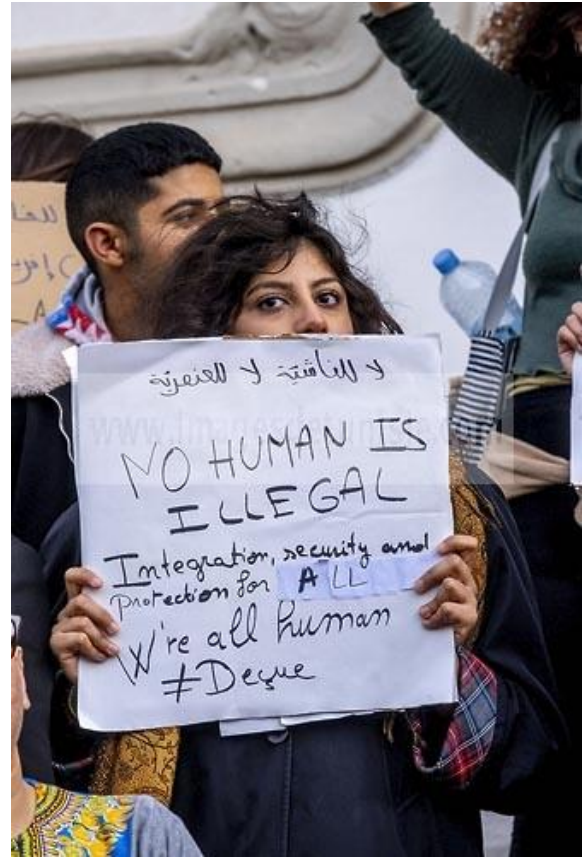 لا للفاشية لا للعنصرية
NO HUMAN IS
ILLEGAL
Integration, security and
protection for ALL
W're all human
#Deçue